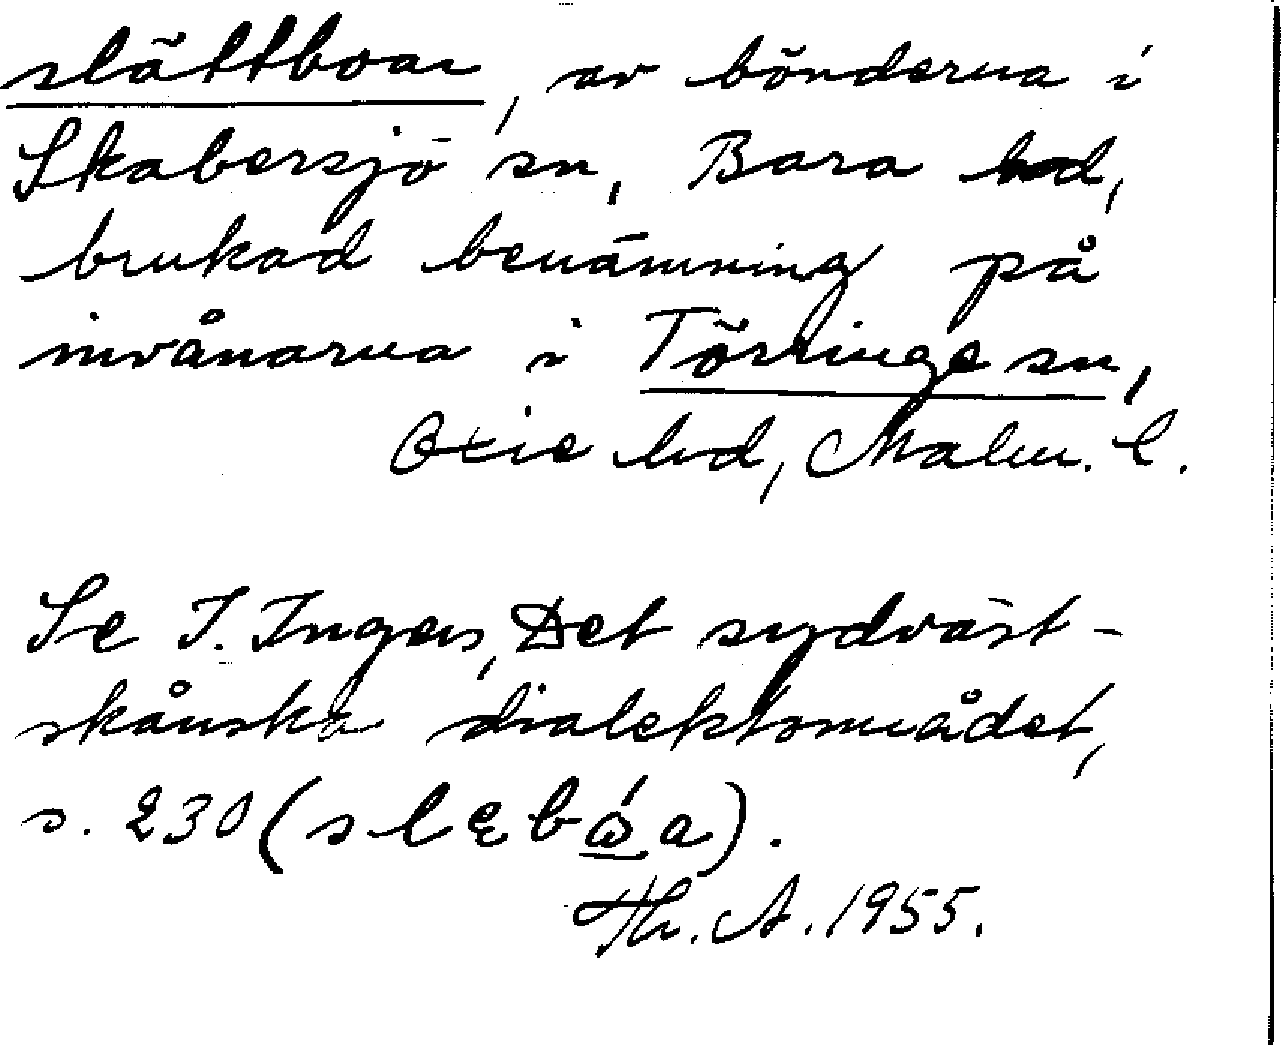 slättboar, av bönderna i
Skabersjö sn, Bara hd,
brukad benämning på
invånarna i Törringe sn,
Oxie hd, Malm. l.
Se I. Ingers, Det sydväst-
skånska dialektområdet,
s. 230 (slębώa).
Th. A. 1955.